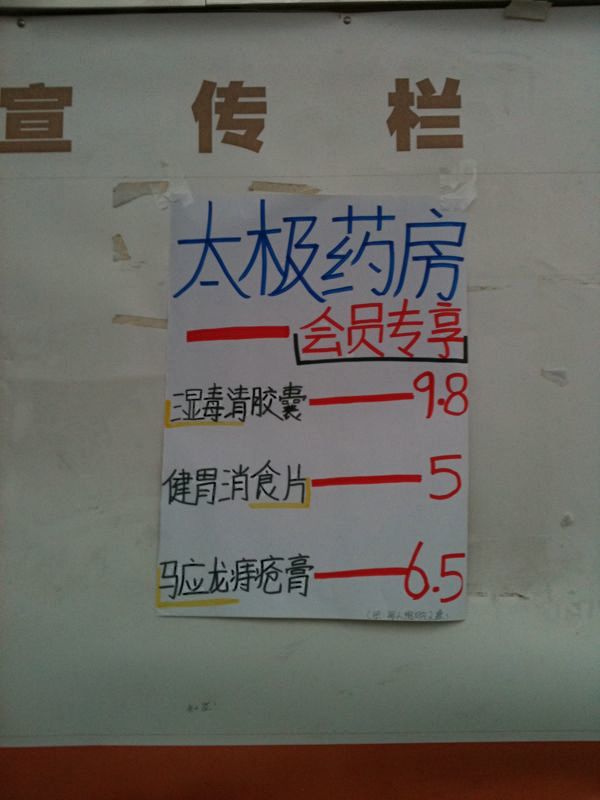 宣传栏
太极药房
——会员专享
湿毒清胶囊——9.8
健胃消食片——5
马应龙痔疮膏——6.5